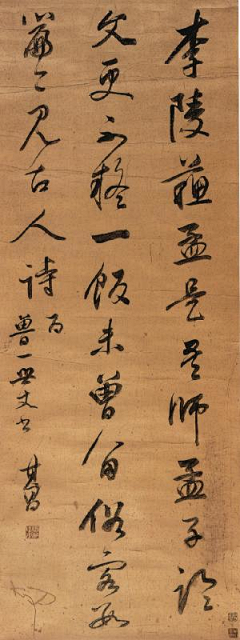 李陵蘓武是吾師孟子論
文更不疑一飯未曾留俗客數
篇今見古人詩
為
魯一
書
其昌